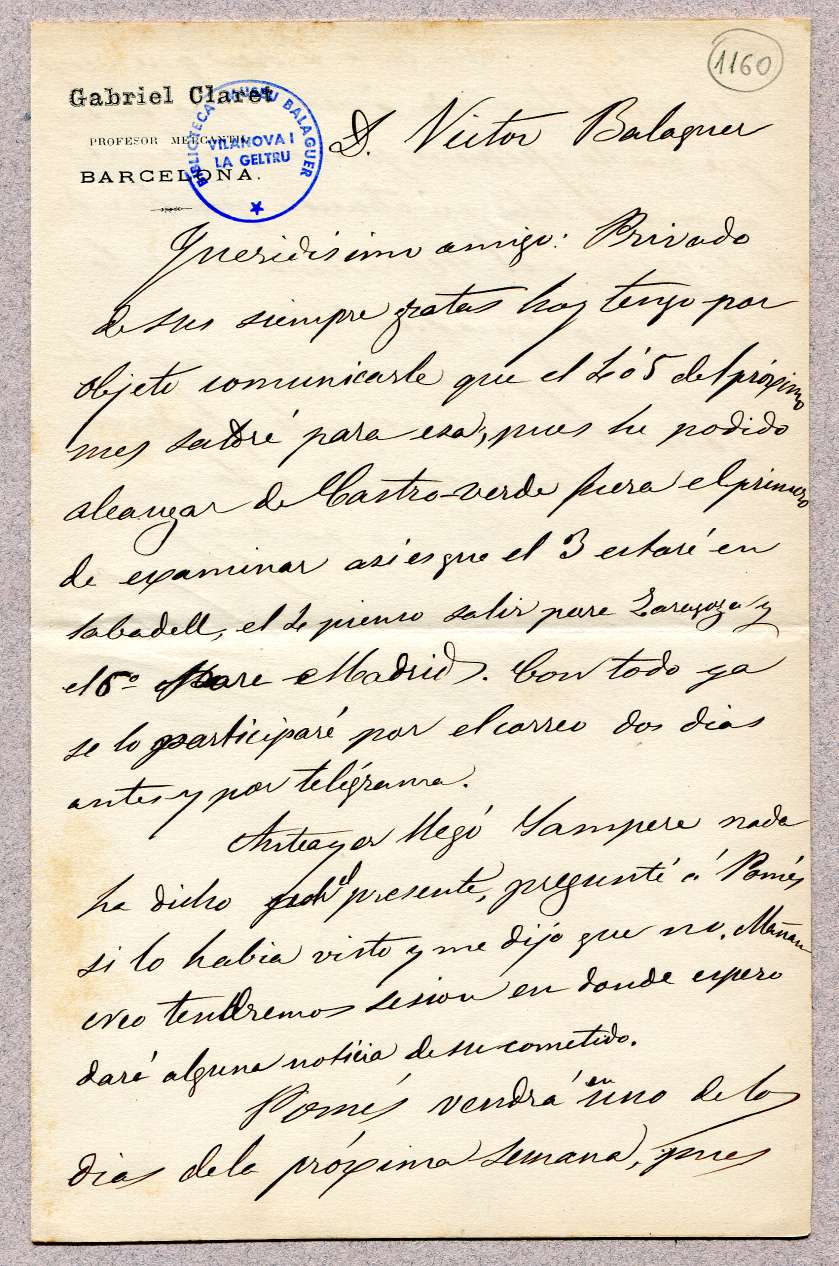 1160
Gabriel Claret
PROFESOR MERCANTIL
BARCELONA.
BIBLIOTECA MUSEU BALAGUER
VILANOVA I
LA GELTRU
D. Victor Balaguer
Queridisimo amigo: Privado
de sus siempre gratas hoy tengo por
objeto comunicarle que el 4 ó 5 del próximo
mes saldré para esa, pues he podido
alcanzar de Castro-verde fuera el primero
de examinar asi es que el 3 estaré en
Sabadell, el 4 pienso salir para Zaragoza y
el 5º para Madrid. Con todo ya
se lo participaré por el correo dos dias
antes y por telégrama.
Anteayer llegó Sampere nada
ha dicho el presente, pregunté á Pomés
si lo habia visto y me dijo que no. Mañana
creo tendremos sesion en donde espero
daré alguna noticia de su cometido.
Pomés vendrá en uno de los
dias de la próxima semana, pues